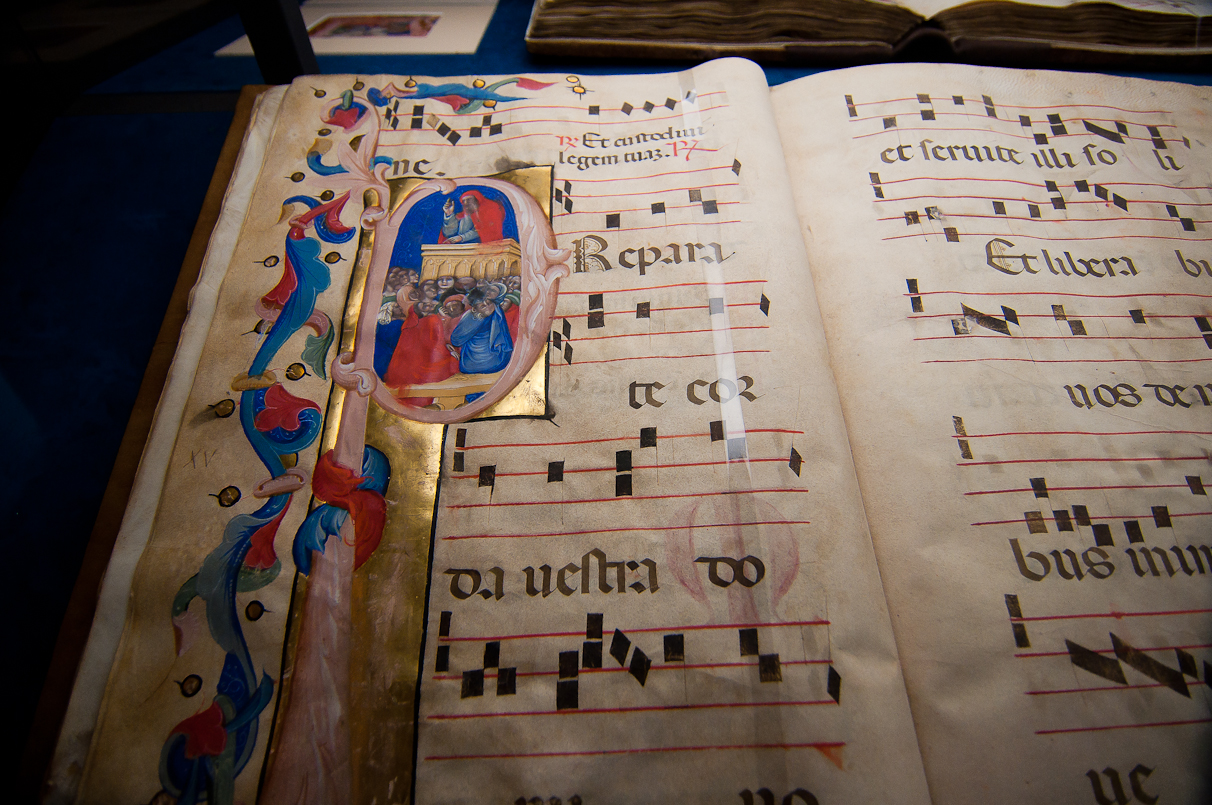 ne. Et custodiui
legem tuaz.
PRepara
te cor
da uestra do
et seruite illi so li
Et libera
uos de
bus